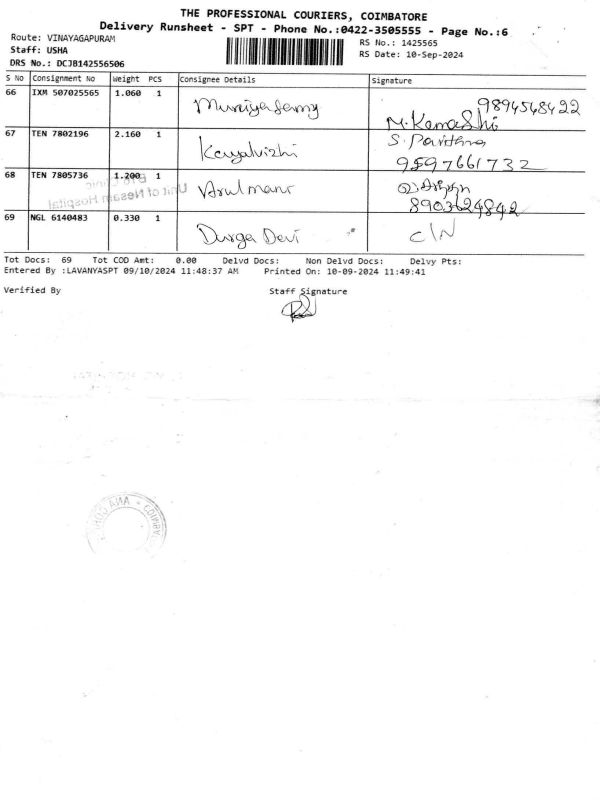 THE PROFESSIONAL COURIERS, COIMBATORE
Delivery Runsheet - SPT - Phone No.:0422-3505555 - Page No.:6
Route: VINAYAGAPURAM
RS No.: 1425565
Staff: USHA
RS Date: 10-Sep-2024
DRS No.: DCJB142556506
S No Consignment No Weight PCS Consignee Details Signature
66 IXM 507025565 1.060 1 Muniyasamy 9894548422
M. Kamashi
67 TEN 7802196 2.160 1 Kayalvizhi S. Pavithra
9597661732
68 TEN 7805736 1.200 1 Arulmani
Eye Clinic
Unit of Nesam Hospital
8903624842
69 NGL 6140483 0.330 1 Durga Devi C/N
Tot Docs: 69 Tot COD Amt: 0.00 Delvd Docs: Non Delvd Docs: Delvy Pts:
Entered By :LAVANYASPT 09/10/2024 11:48:37 AM Printed On: 10-09-2024 11:49:41
Verified By Staff Signature